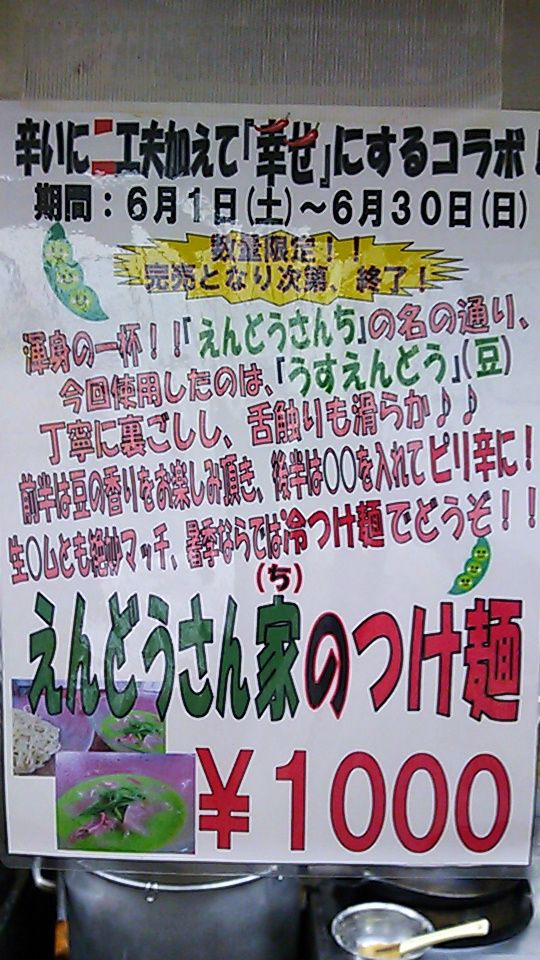 辛いに二工夫加えて『幸せ』にするコラボ！
期間：６月１日（土）～６月３０日（日）
数量限定！！
完売となり次第、終了！
渾身の一杯！！『えんどうさんち』の名の通り、
今回使用したのは、『うすえんどう』（豆）
丁寧に裏ごしし、舌触りも滑らか♪♪
前半は豆の香りをお楽しみ頂き、後半は〇〇を入れてピリ辛に！
生〇ムとも絶妙マッチ、暑季ならでは冷つけ麺でどうぞ！！
（ち）
えんどうさん家のつけ麺
￥１０００